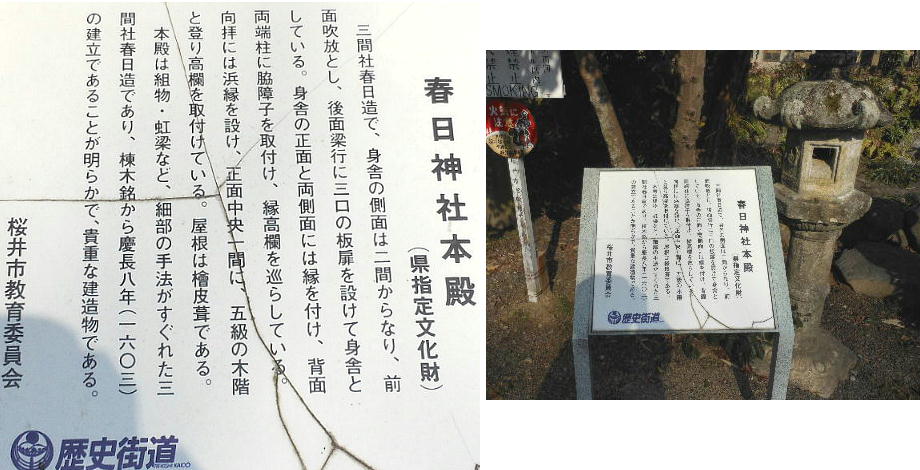 春日神社本殿
(県指定文化財)
三間社春日造で、身舎の側面は二間からなり、前
面吹放とし、後面梁行に三口の板扉を設けて身舎と
している。身舎の正面と両側面には縁を付け、背面
両端柱に脇障子を取付け、縁高欄を巡らしている。
向拝には浜縁を設け、正面中央一間に、五級の木階
と登り高欄を取付けている。屋根は檜皮葺である。
本殿は組物・虹梁など、細部の手法がすぐれた三
間社春日造であり、棟木銘から慶長八年(一六〇三)
の建立であることが明らかで、貴重な建造物である。
桜井市教育委員会
歴史街道
SMOKING
春日神社本殿
(県指定文化財)
桜井市教育委員会
歴史街道